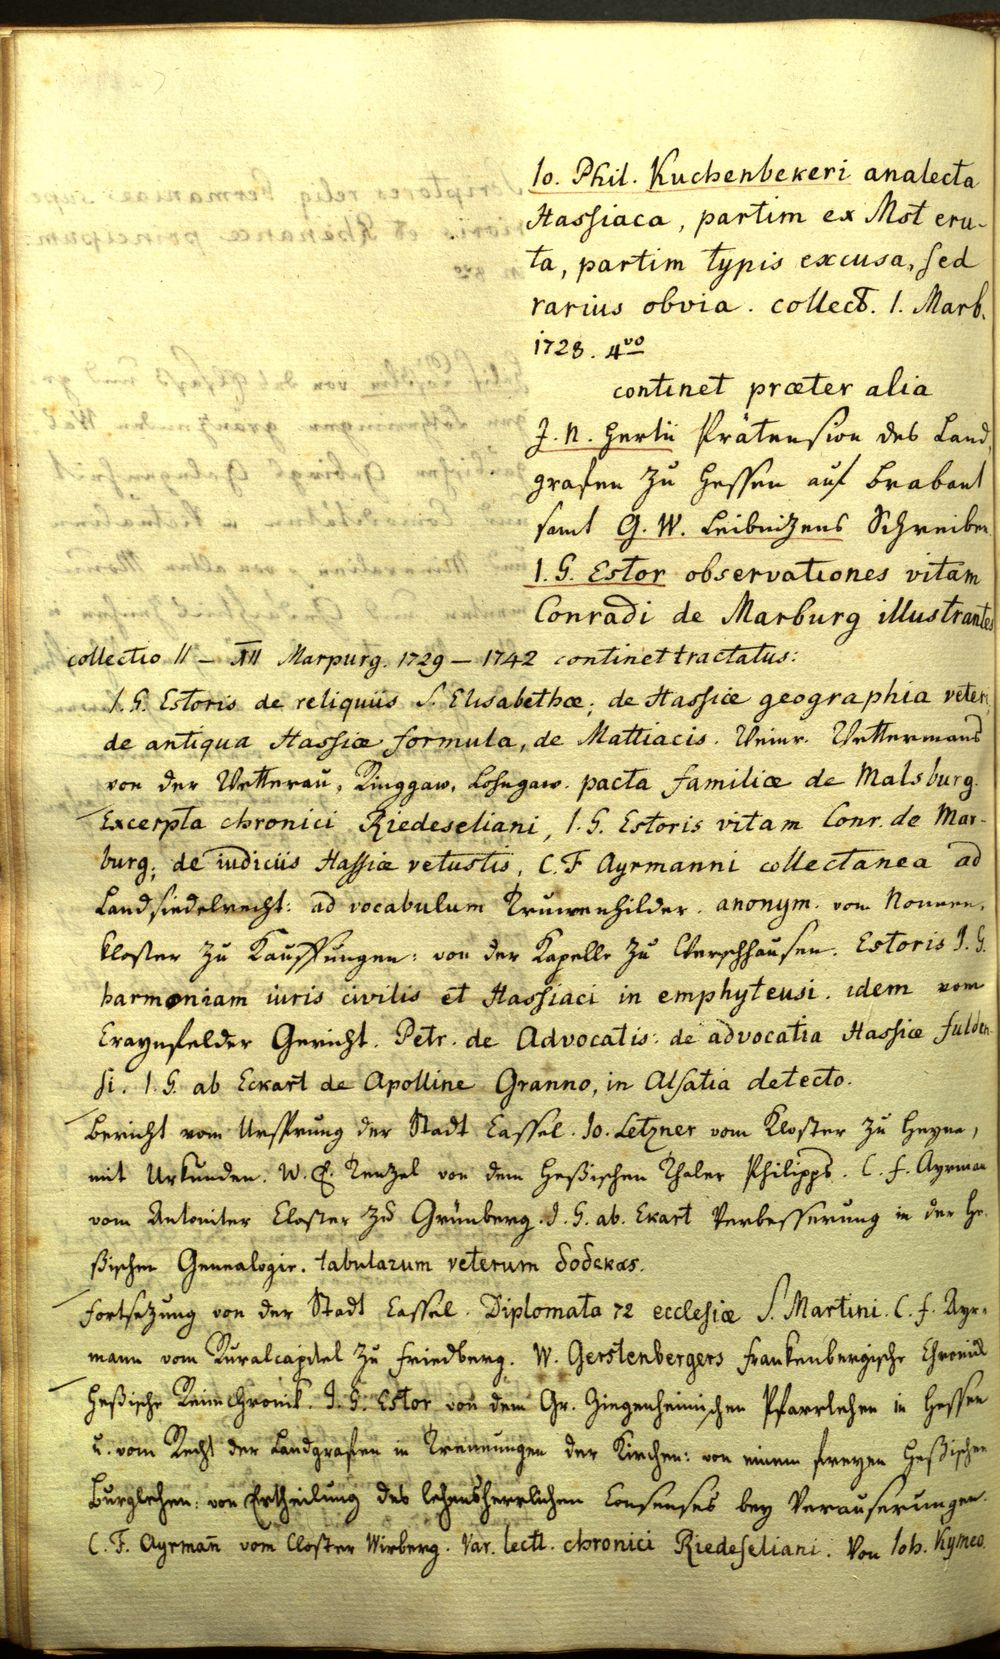 Io. Phil. Kuchenbekeri analecta
Hassiaca, partim ex Mst eru-
ta, partim typis excusa, sed
rarius obvia. collect. I. Marb.
1728. 4vo
continet præter alia
J. N. Hertii Prätension des Land
grafen zu Hessen auf Brabant
samt G. W. Leibnizens Schreiben
I. G. Estor observationes vitam
Conradi de Marburg illustrantes
collectio II – XII Marpurg. 1729 – 1742 continet tractatus:
I. G. Estoris de reliquiis S. Elisabethæ; de Hassiæ geographia veteri,
de antiqua Hassiæ formula, de Mattiacis. Weinr. Wettermans
von der Wetterau, Ringgaw, Lohngaw. pacta familiæ de Malsburg.
Excerpta chronici Riedeseliani, I. G. Estoris vitam Conr. de Mar-
burg; de iudiciis Hassiæ vetustis, C. F Ayrmanni collectanea ad
Landsiedelrecht: ad vocabulum Truwenhilder. anonym. vom Nonnen,
kloster zu Kauffungen: von der Kapelle zu Werschhausen. Estoris I. G.
harmoniam iuris civilis et Hassiaci in emphyteusi. idem vom
Craynfelder Gericht. Petr. de Advocatis: de advocatia Hassiæ fulden-
si. I. G. ab Eckart de Apolline Granno, in Alsatia detecto.
Bericht vom Ursprung der Stadt Cassel. Io. Letzner vom Kloster zu Heyna,
mit Urkunden. W. E. Tentzel von dem Heßischen Thaler Philipps. C. F. Ayrman
vom Antoniter Closter zu Grünberg. I. G. ab. Ekart Verbesserung in der He-
ßischen Genealogie. tabularum veterum dodekas.
Fortsetzung von der Stadt Cassel. Diplomata 72 ecclesiæ S. Martini. C. F. Ayr-
mann vom Ruralcapitel zu Friedberg. W. Gerstenbergers Frankenbergische Chronik
Heßische Reim Chronik. I. G. Estor von dem Gr. Ziegenheimischen Pfarrlehen in Hessen
u. vom Recht der Landgrafen in Trennungen der Kirchen: von einem freyen Heßischen
Burglehen: von Ertheilung des lehnsherrlichen Consenses bey Veräuserungen.
C. F. Ayrmañ vom Closter Wirberg. Var. lectt. chronici Riedeseliani. Von Ioh. Kymeo